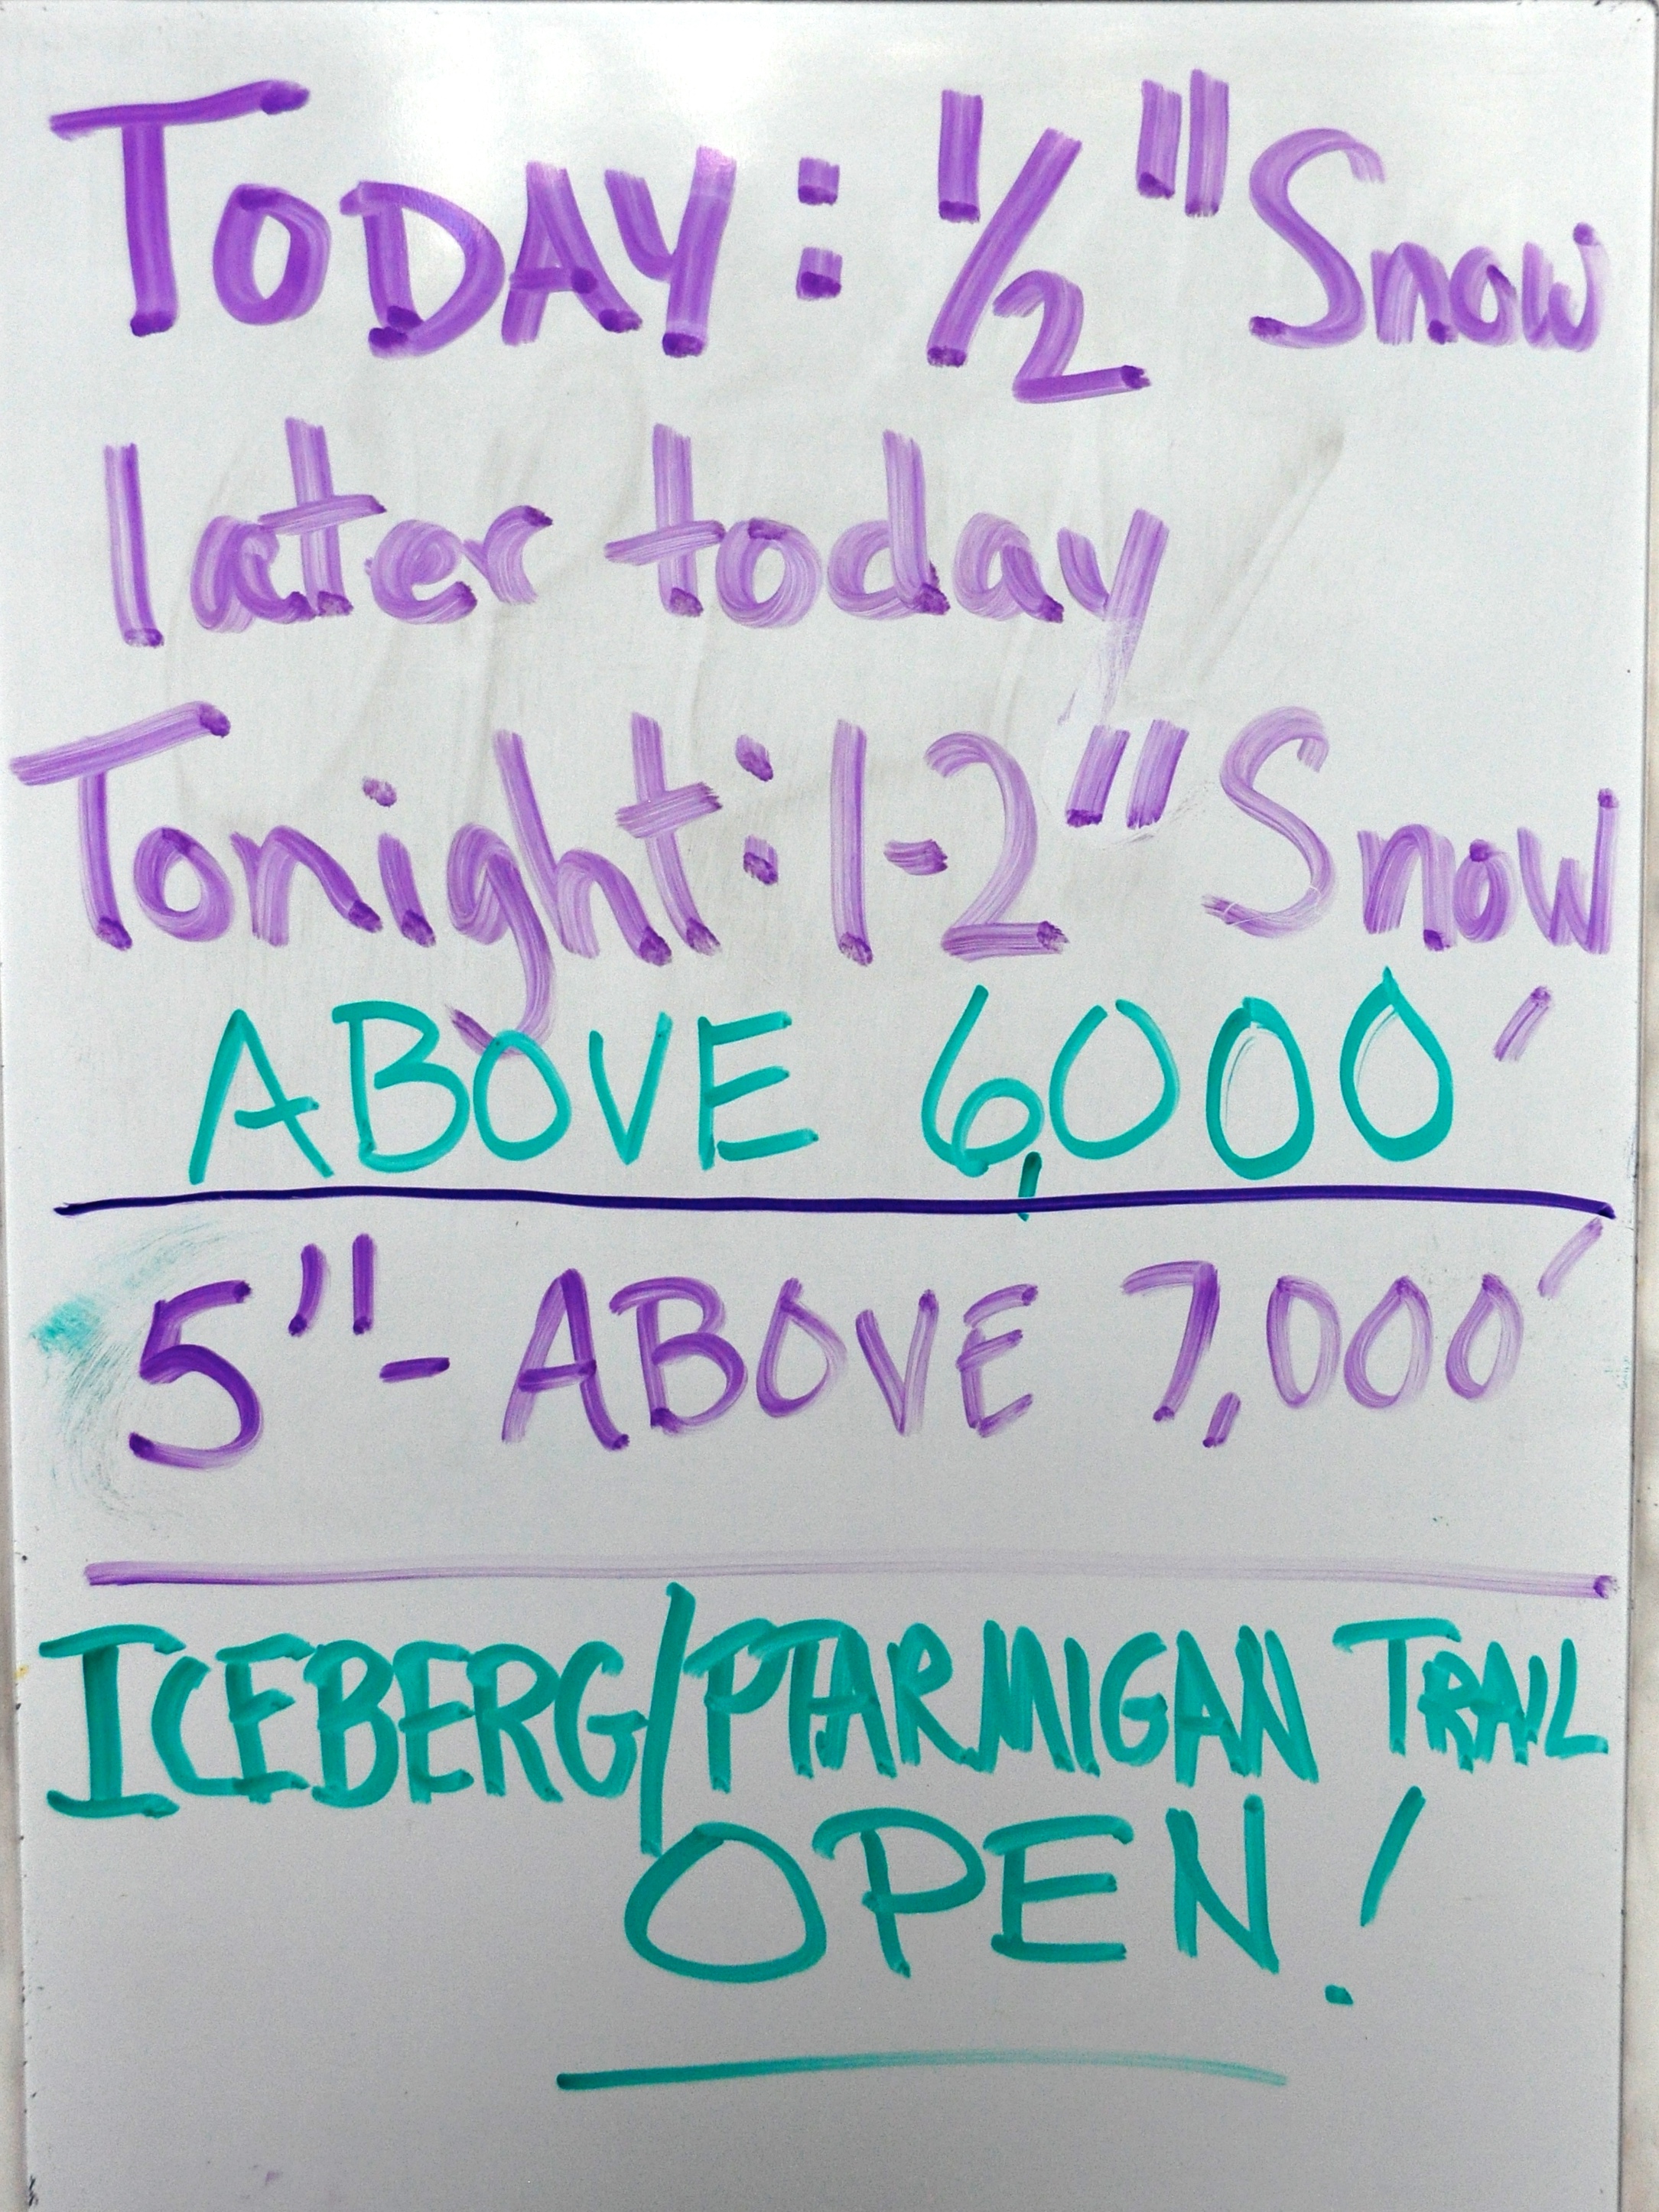 TODAY: 1/2" Snow
later today
Tonight: 1-2" Snow
ABOVE 6,000'
5"- ABOVE 7,000'
ICEBERG/PTARMIGAN TRAIL
OPEN!